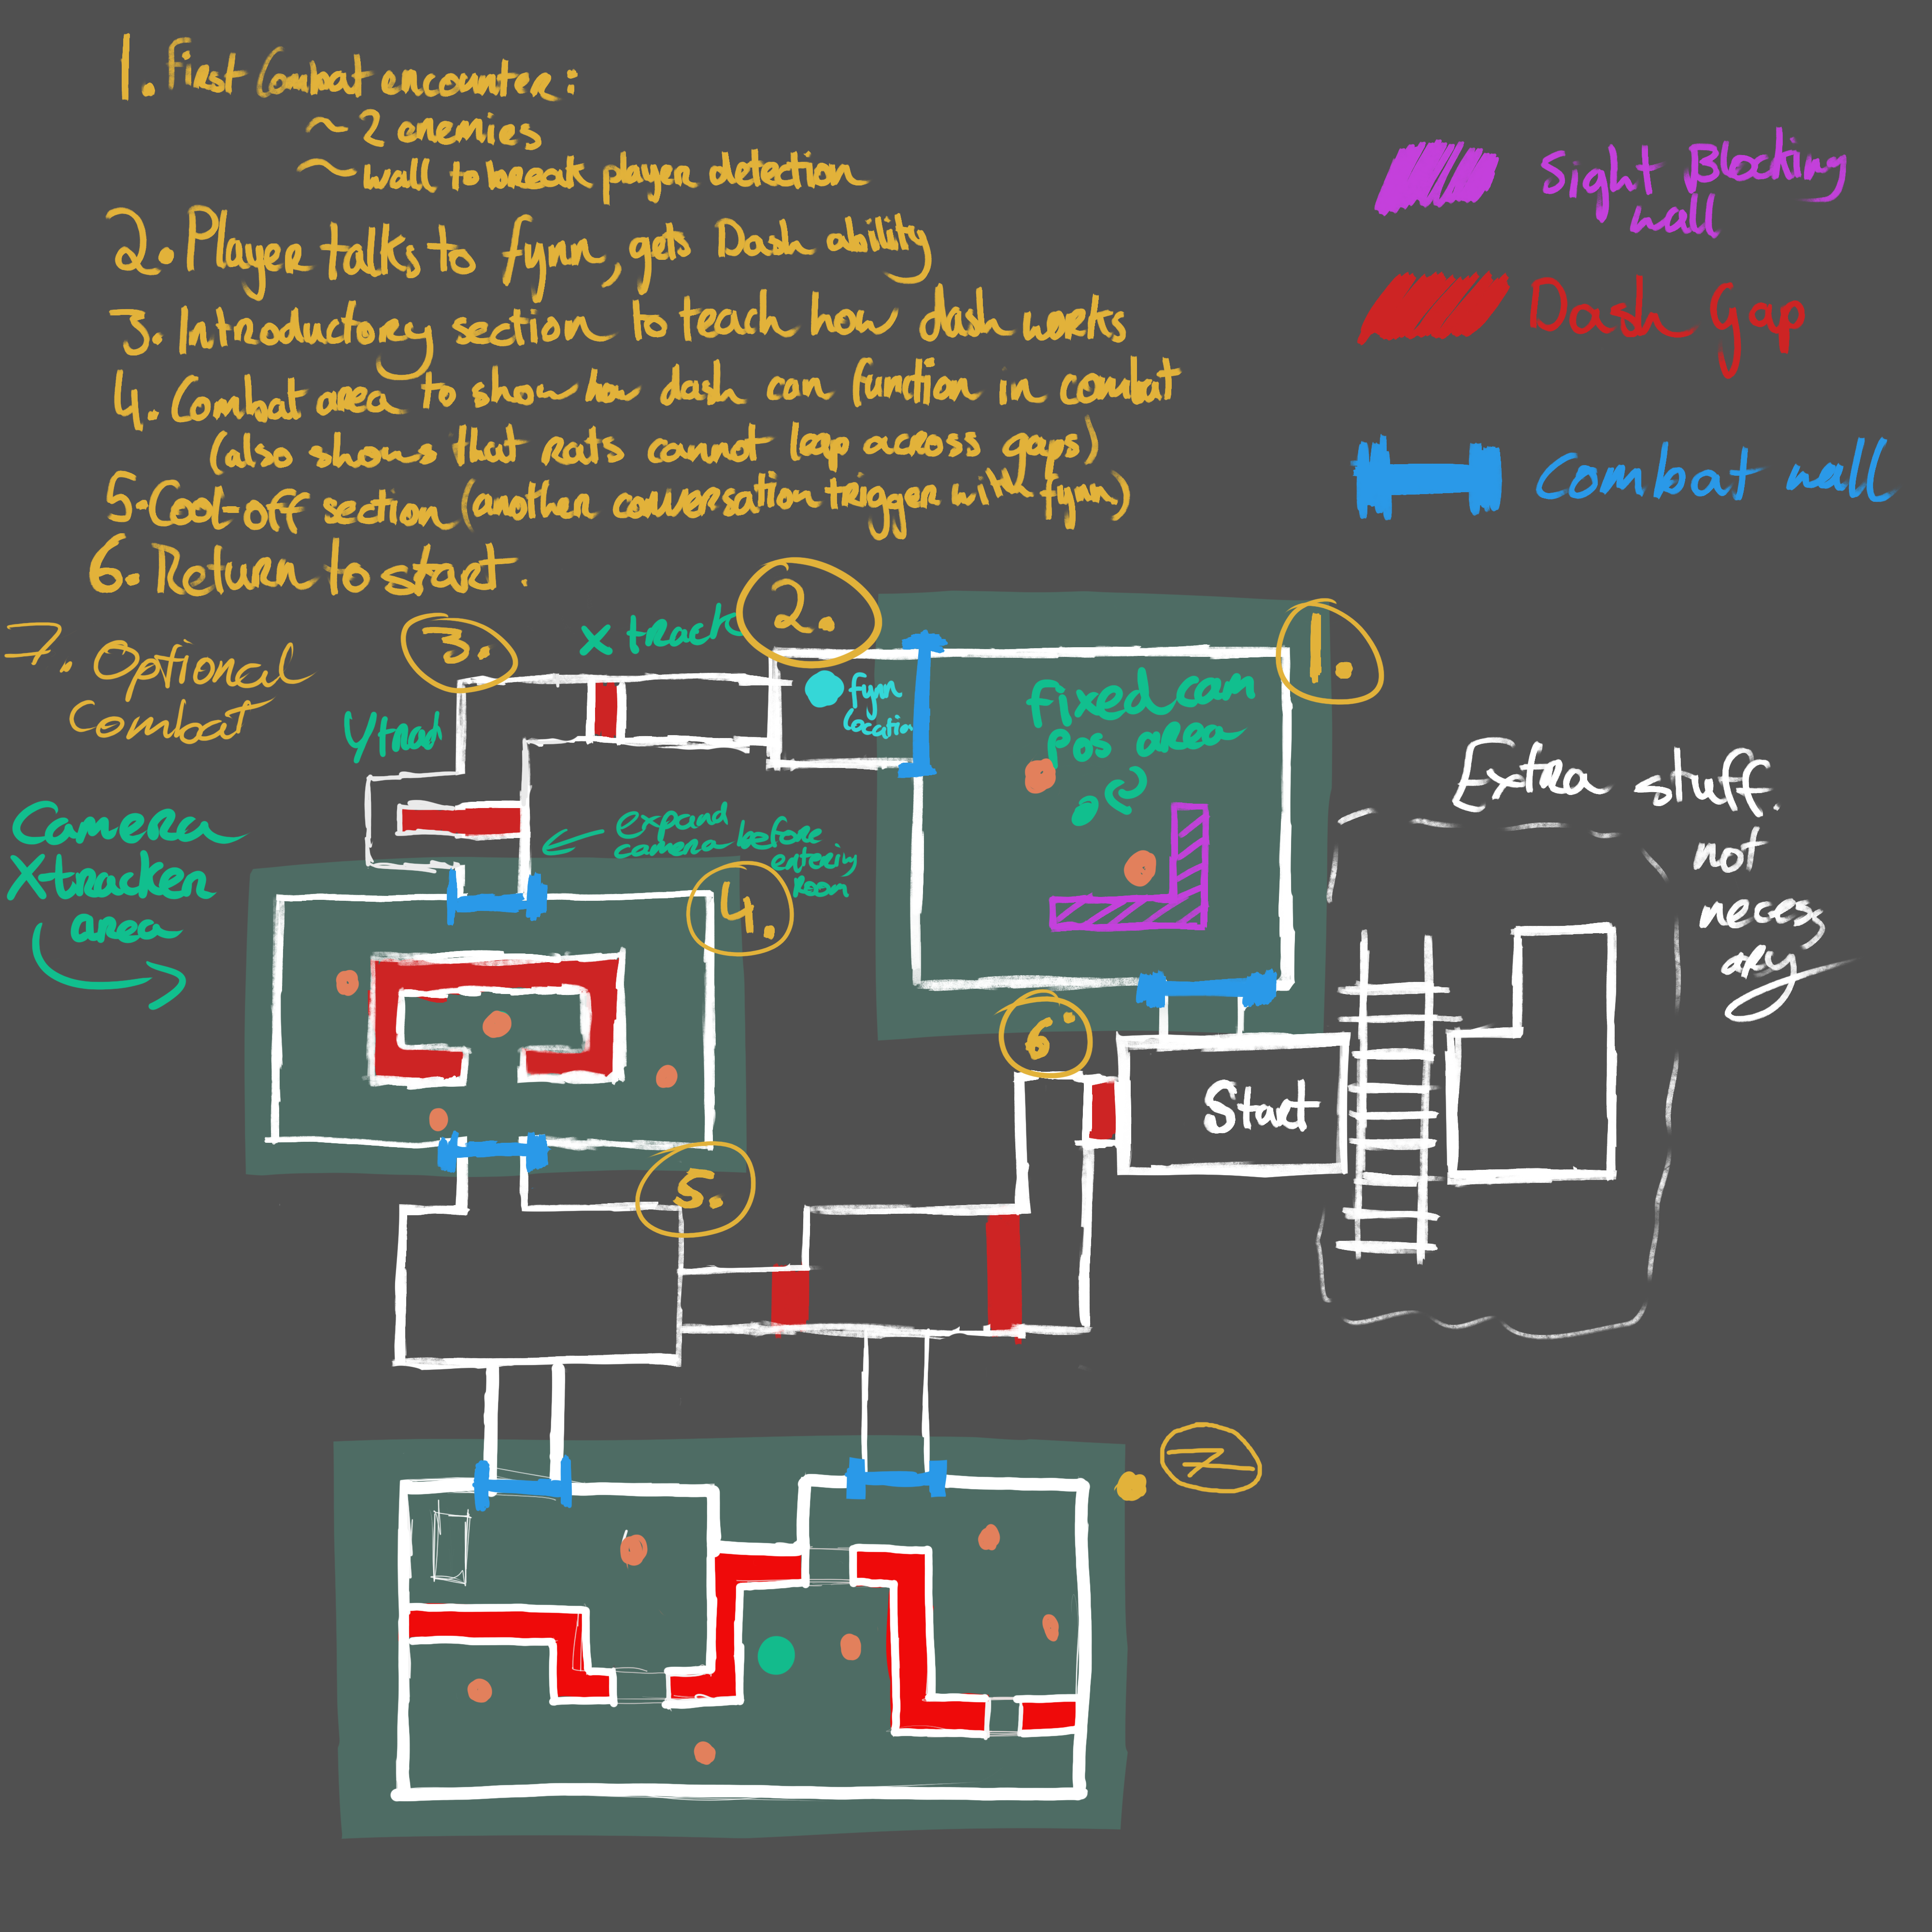 1. First Combat encounter:
~ 2 enemies
~ wall to break player detection
2. Player talks to fynn, gets Dash ability
3. Introductory section to teach how dash works
4. Combat area to show how dash can function in combat
(also shows that rats cannot leap across gaps)
5. Cool-off section (another conversation trigger with fynn)
6. Return to start.
7. Optional
Combat
Sight Blocking
wall
Dash Gap
Combat wall
3.
X track
2.
1.
Y track
fynn
location
fixed cam
pos area
Extra stuff.
not
necess
ary
Camera
X tracker
area
expand
camera before
entering
room
4.
6.
Start
5.
7